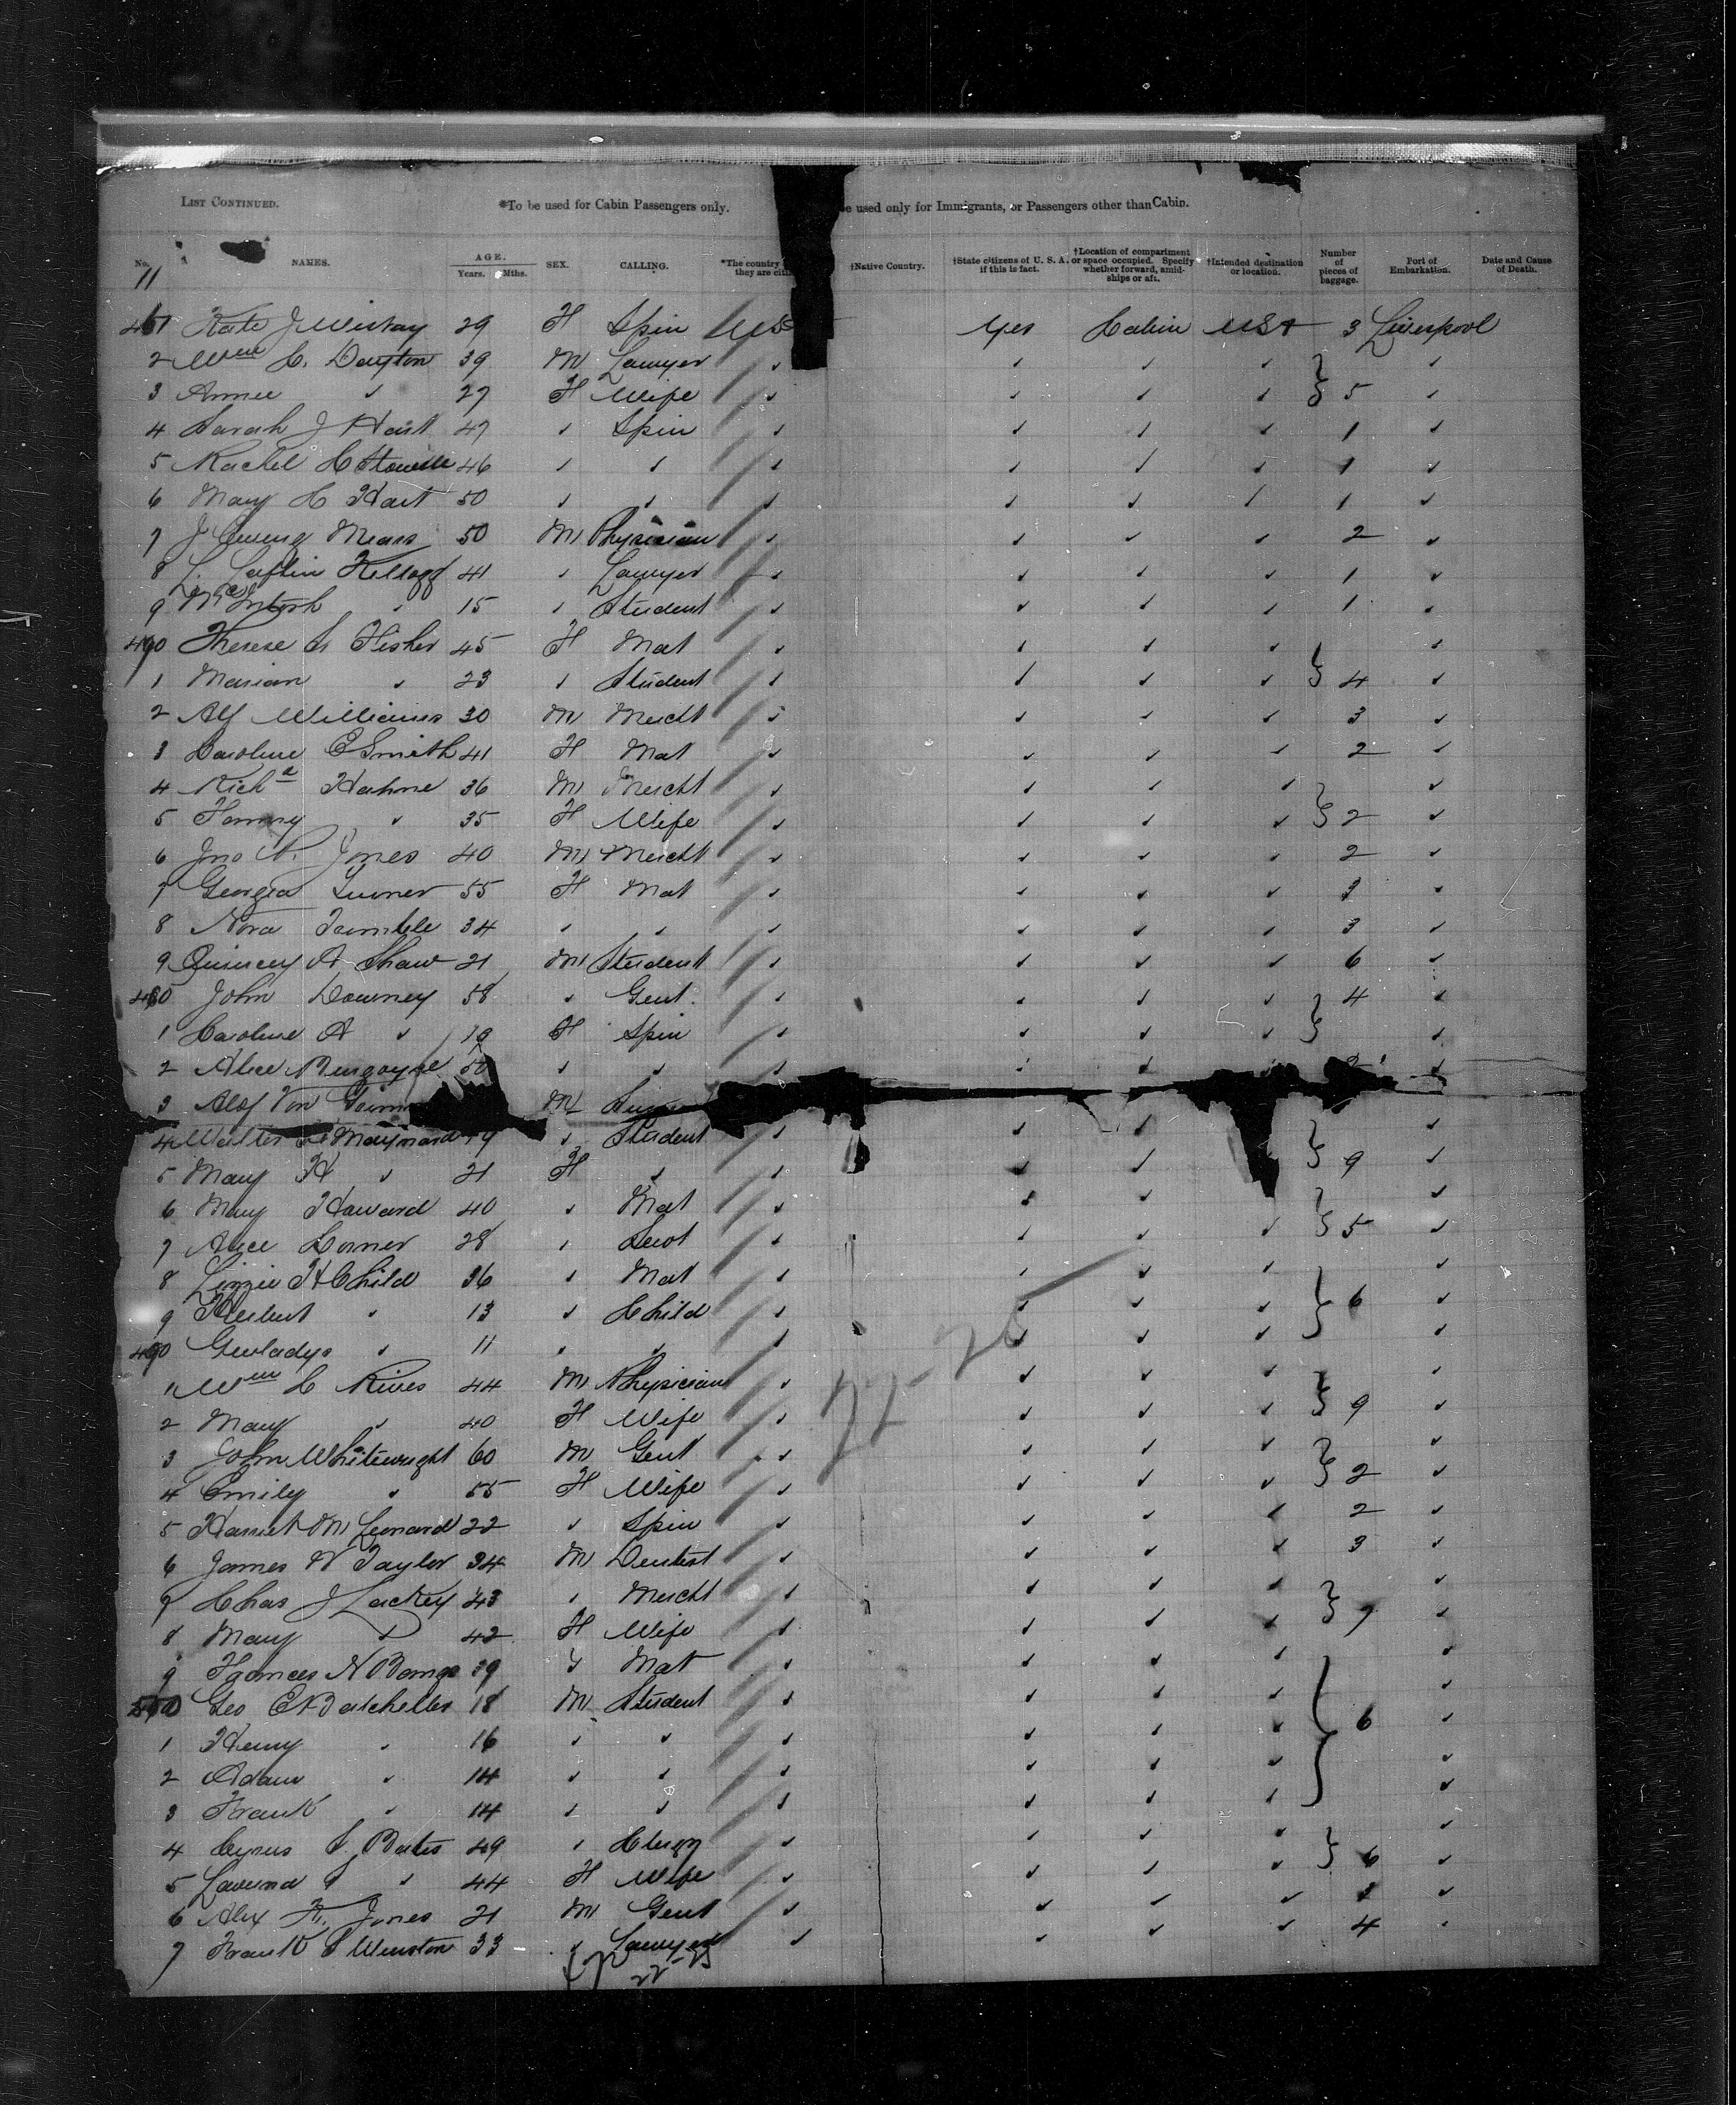 LIST CONTINUED. *To be used for Cabin Passengers only. be used only for Immigrants, or Passengers other than Cabin.
No. NAMES. AGE. Years. Mths. SEX. CALLING. *The country they are citi †Native Country. †State citizens of U. S. A. if this is fact. †Location of compartment or space occupied. Specify whether forward, amidships or aft. †Intended destination or location. Number of pieces of baggage. Port of Embarkation. Date and Cause of Death.
11
Kate J 29 F Spin US Yes Cabin USA 3 Liverpool
2 Wm C. Dayton 39 M Lawyer ✓ ✓ ✓ ✓ ✓
3 Annie ✓ 27 F Wife ✓ ✓ ✓ ✓ 5 ✓
4 Sarah J Hart 47 ✓ Spin ✓ ✓ ✓ ✓ 1 ✓
5 Rachel C 46 ✓ ✓ ✓ ✓ ✓ ✓ 1 ✓
6 Mary C Hart 50 ✓ ✓ ✓ ✓ ✓ ✓ 1 ✓
7 J Ewing Mears 50 M Physician ✓ ✓ ✓ ✓ 2 ✓
8 L. Laflin Kellogg 41 ✓ Lawyer ✓ ✓ ✓ ✓ 1 ✓
9 McIntosh ✓ 15 ✓ Student ✓ ✓ ✓ ✓ 1 ✓
Therese Fisher 45 F Mat ✓ ✓ ✓ ✓ ✓
1 Marian ✓ 23 ✓ Student ✓ ✓ ✓ ✓ 4 ✓
2 Alf Williams 30 M Mercht ✓ ✓ ✓ ✓ 3 ✓
3 Caroline E Smith 41 F Mat ✓ ✓ ✓ ✓ 2 ✓
4 Richd Hahne 36 M Mercht ✓ ✓ ✓ ✓ ✓
5 Fanny ✓ 35 F Wife ✓ ✓ ✓ ✓ 2 ✓
6 Jno Jones 40 M Mercht ✓ ✓ ✓ ✓ 2 ✓
7 Georgia 55 F Mat ✓ ✓ ✓ ✓ 3 ✓
8 Nora 34 ✓ ✓ ✓ ✓ ✓ ✓ 3 ✓
9 Quincey A Shaw 21 M Student ✓ ✓ ✓ ✓ 6 ✓
480 John Downey 58 ✓ Gent. ✓ ✓ ✓ ✓ 4 ✓
1 Caroline A ✓ 19 F Spin ✓ ✓ ✓ ✓ ✓
2 Alice Burgoyne 50 ✓ ✓ ✓ ✓ ✓ ✓ 2 ✓
3 Von M
4 Walter Maynard 19 ✓ Student ✓ ✓ ✓ ✓
5 Mary H ✓ 21 F ✓ ✓ ✓ ✓ 9 ✓
6 Mary Howard 40 ✓ Mat ✓ ✓ ✓ ✓
7 Alice 28 ✓ ✓ ✓ ✓ ✓ 5 ✓
8 Lizzie H Child 36 ✓ Mat ✓ ✓ ✓ ✓ ✓
9 Herbert ✓ 13 ✓ Child ✓ ✓ ✓ ✓ 6 ✓
490 Gwladys ✓ 11 ✓ ✓ ✓ ✓ ✓ ✓ ✓
1 Wm C Rives 44 M Physician ✓ ✓ ✓ ✓ ✓
2 Mary ✓ 40 F Wife ✓ ✓ ✓ ✓ 9 ✓
3 John Whitewright 60 M Gent ✓ ✓ ✓ ✓ ✓
4 Emily ✓ 55 F Wife ✓ ✓ ✓ ✓ 2 ✓
5 Harriet M Leonard 22 ✓ Spin ✓ ✓ ✓ ✓ 2 ✓
6 James W Taylor 34 M Dentist ✓ ✓ ✓ ✓ 3 ✓
7 Chas J Lackey 43 ✓ Mercht ✓ ✓ ✓ ✓ ✓
8 Mary ✓ 42 F Wife ✓ ✓ ✓ ✓ 7 ✓
9 Frances N Bangs 39 ✓ Mat ✓ ✓ ✓ ✓ ✓
500 Geo E Batcheller 18 M Student ✓ ✓ ✓ ✓ ✓
1 Henry ✓ 16 ✓ ✓ ✓ ✓ ✓ ✓ 6 ✓
2 Adam ✓ 14 ✓ ✓ ✓ ✓ ✓ ✓ ✓
3 Frank ✓ 14 ✓ ✓ ✓ ✓ ✓ ✓ ✓
4 Cyrus S. Bates 49 ✓ Clergy ✓ ✓ ✓ ✓ ✓
5 ✓ 44 F Wife ✓ ✓ ✓ ✓ 6 ✓
6 Alex Jones 21 M Gent ✓ ✓ ✓ ✓ ✓
7 Frank S Winston 33 ✓ Lawyer ✓ ✓ ✓ ✓ 4 ✓
22-25